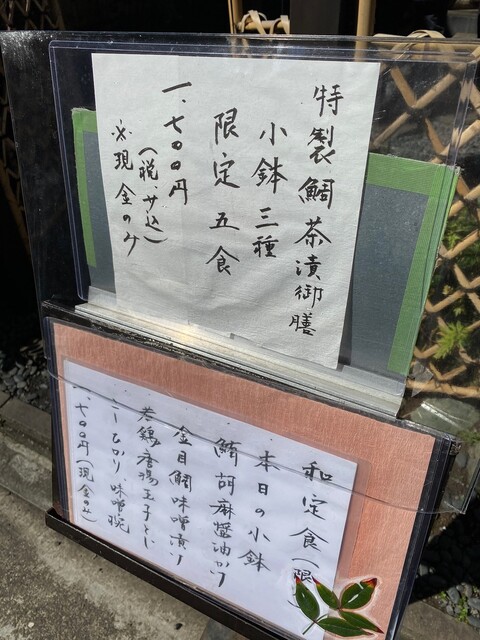 特製鯛茶漬御膳
小鉢三種
限定五食
一、七〇〇円
(税、サ込)
※現金のみ
和定食(限
本日の小鉢
鯖胡麻醤油かけ
金目鯛味噌漬け
若鶏唐揚玉子とじ
こしひかり 味噌椀
一、七〇〇円(現金のみ)